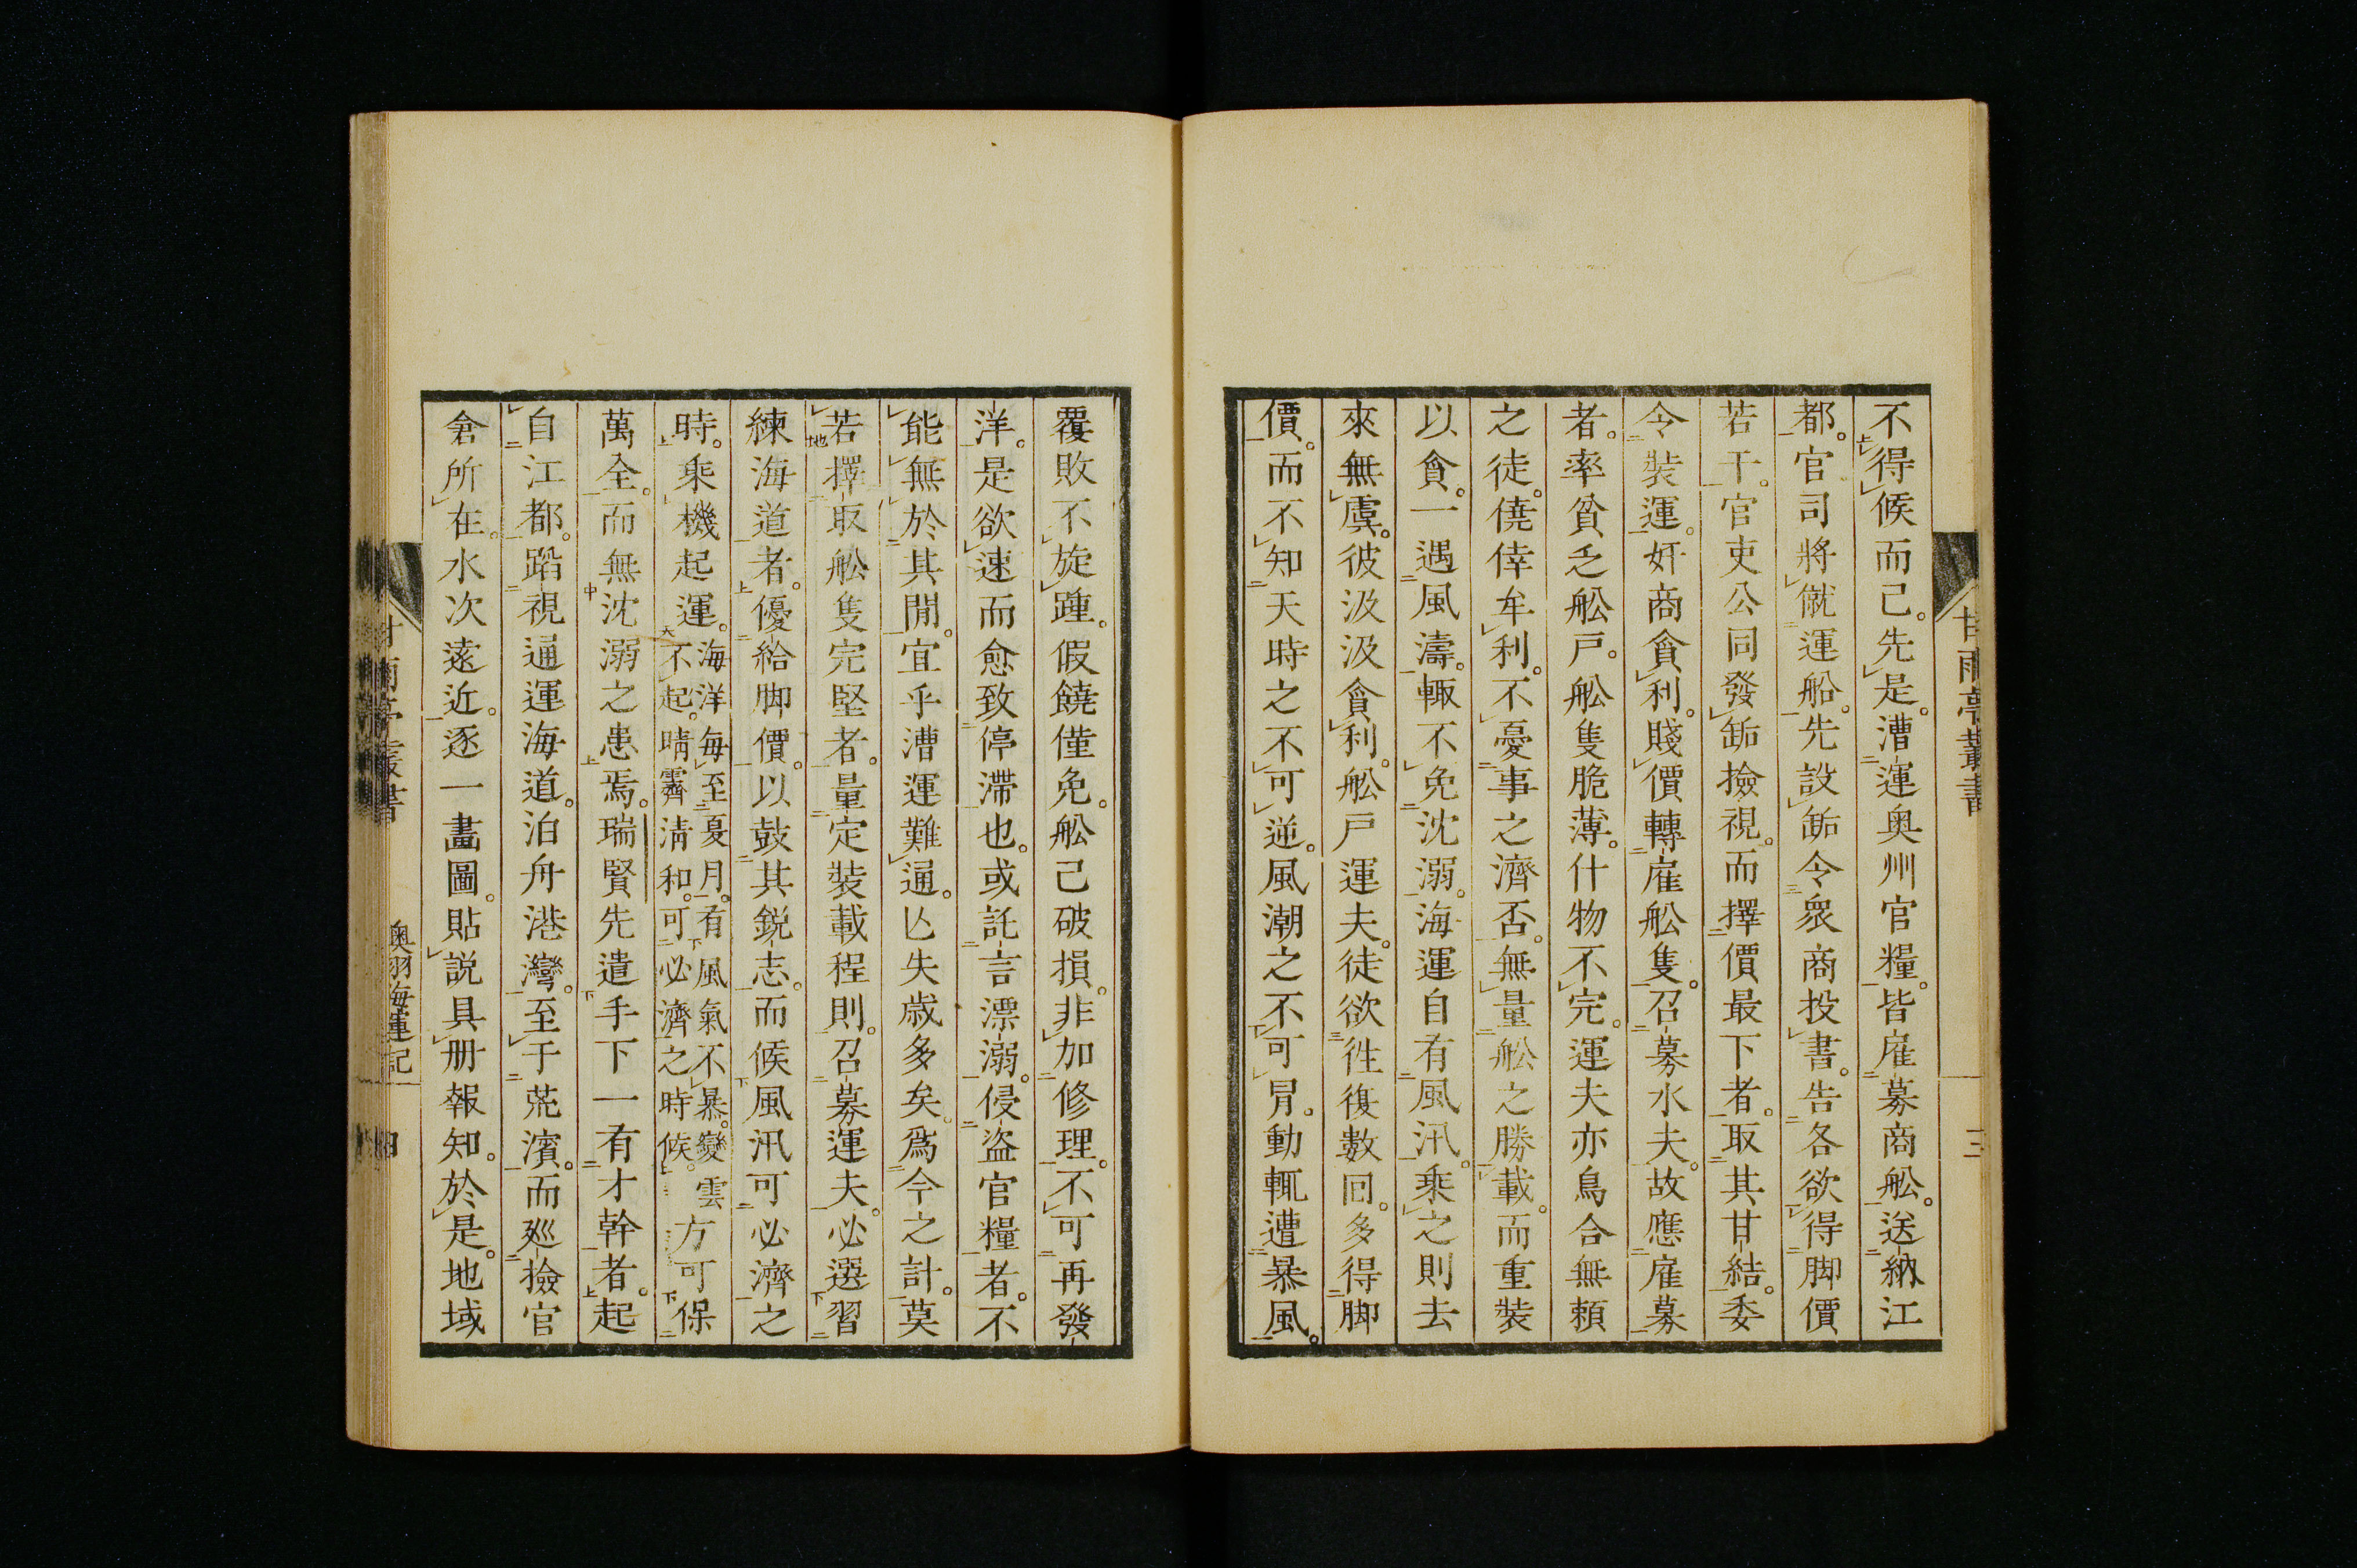 不得候而已。先是。漕運奥州官糧。皆雇募商舩。送納江
都。官司將僦運船。先設缿令衆商投書。告各欲得脚價
若干。官吏公同發缿撿視。而擇價最下者。取其甘結。委
令裝運。奸商貪利。賤價轉雇舩隻。召募水夫。故應雇募
者。率貧乏舩戸。舩隻脆薄。什物不完。運夫亦鳥合無頼
之徒。僥倖牟利。不憂事之濟否。無量舩之勝載。而重裝
以貪。一遇風濤。輙不免沈溺。海運自有風汛。乗之則去
來無虞。彼汲汲貪利。舩戸運夫。徒欲徃復數回。多得脚
價。而不知天時之不可逆。風潮之不可冒。動輒遭暴風。
覆敗不旋踵。假饒僅免。舩已破損。非加修理。不可再發
洋。是欲速而愈致停滯也。或託言漂溺。侵盜官糧者。不
能無於其閒。宜乎漕運難通。亾失歳多矣。爲今之計。莫
若擇取舩隻完堅者。量定裝載程則。召募運夫。必選習
練海道者。優給脚價。以鼓其鋭志。而候風汛可必濟之
時。乘機起運。海洋毎至夏月。有風氣不暴。變雲不起。晴霽淸和。可必濟之時候。方可保
萬全。而無沈溺之患焉。瑞賢先遣手下一有才幹者。起
自江都。蹈視通運海道。泊舟港灣。至于荒濱。而廵撿官
倉所在。水次遠近。逐一畵圖。貼説具册報知。於是。地域
甘雨亭叢書
三
甘雨亭叢書
奥羽海運記
四